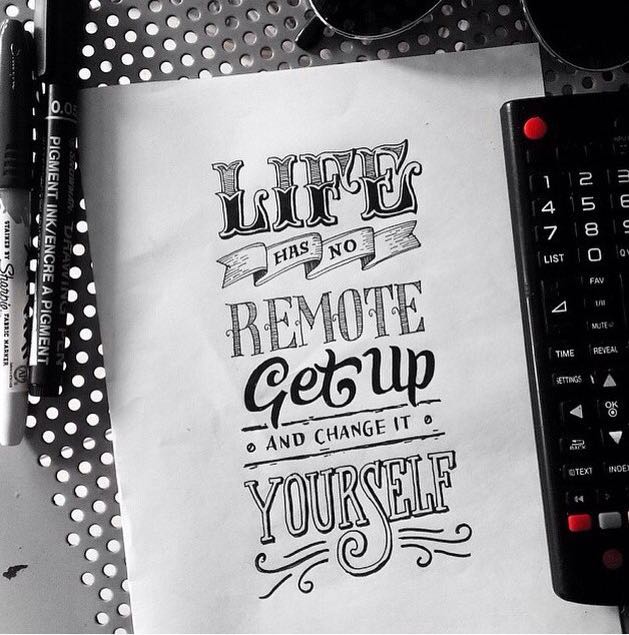 LIFE
HAS NO
REMOTE
Get Up
AND CHANGE IT
YOURSELF
0.05
PIGMENT INK/ENCRE A PIGMENT
DRAWING PEN
STAINED BY Sharpie FABRIC MARKER
1 2 3
4 5 6
7 8 9
LIST 0
FAV
MUTE
TIME REVEAL
SETTINGS
OK
BACK
TEXT INDEX